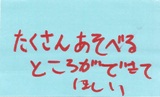 たくさんあそべる
ところができて
ほしい